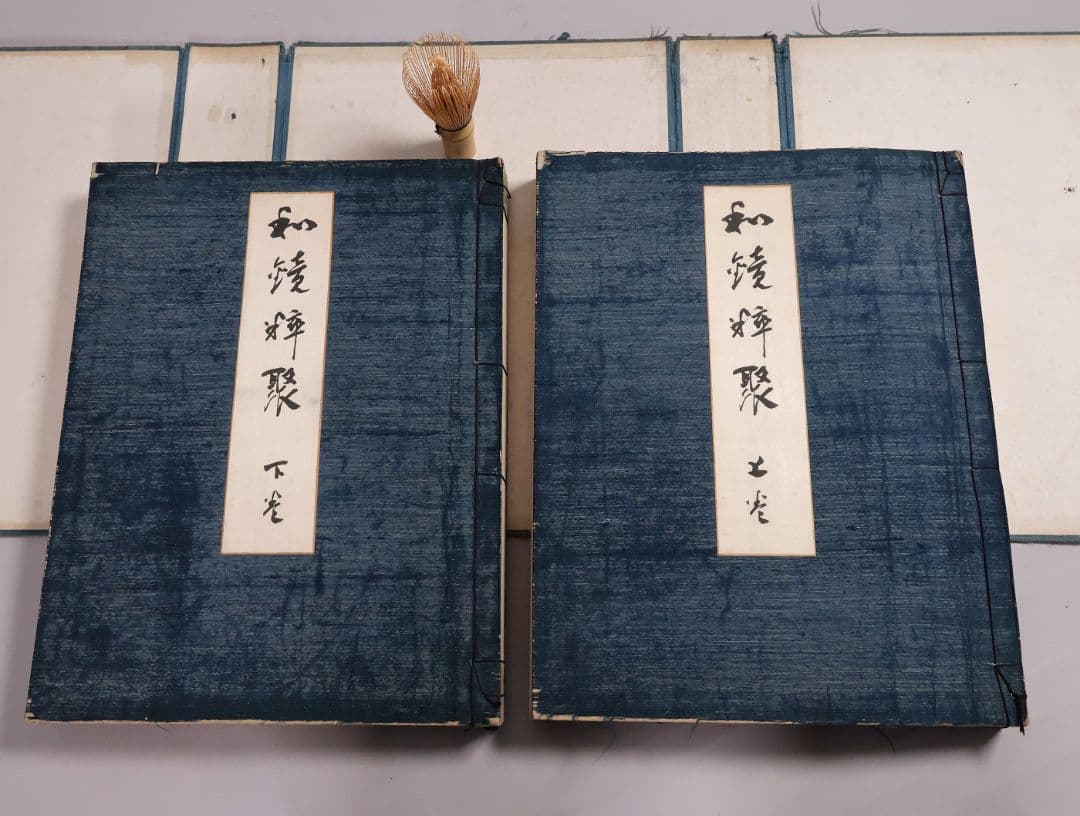 和鏡粹聚 上卷
和鏡粹聚 下卷